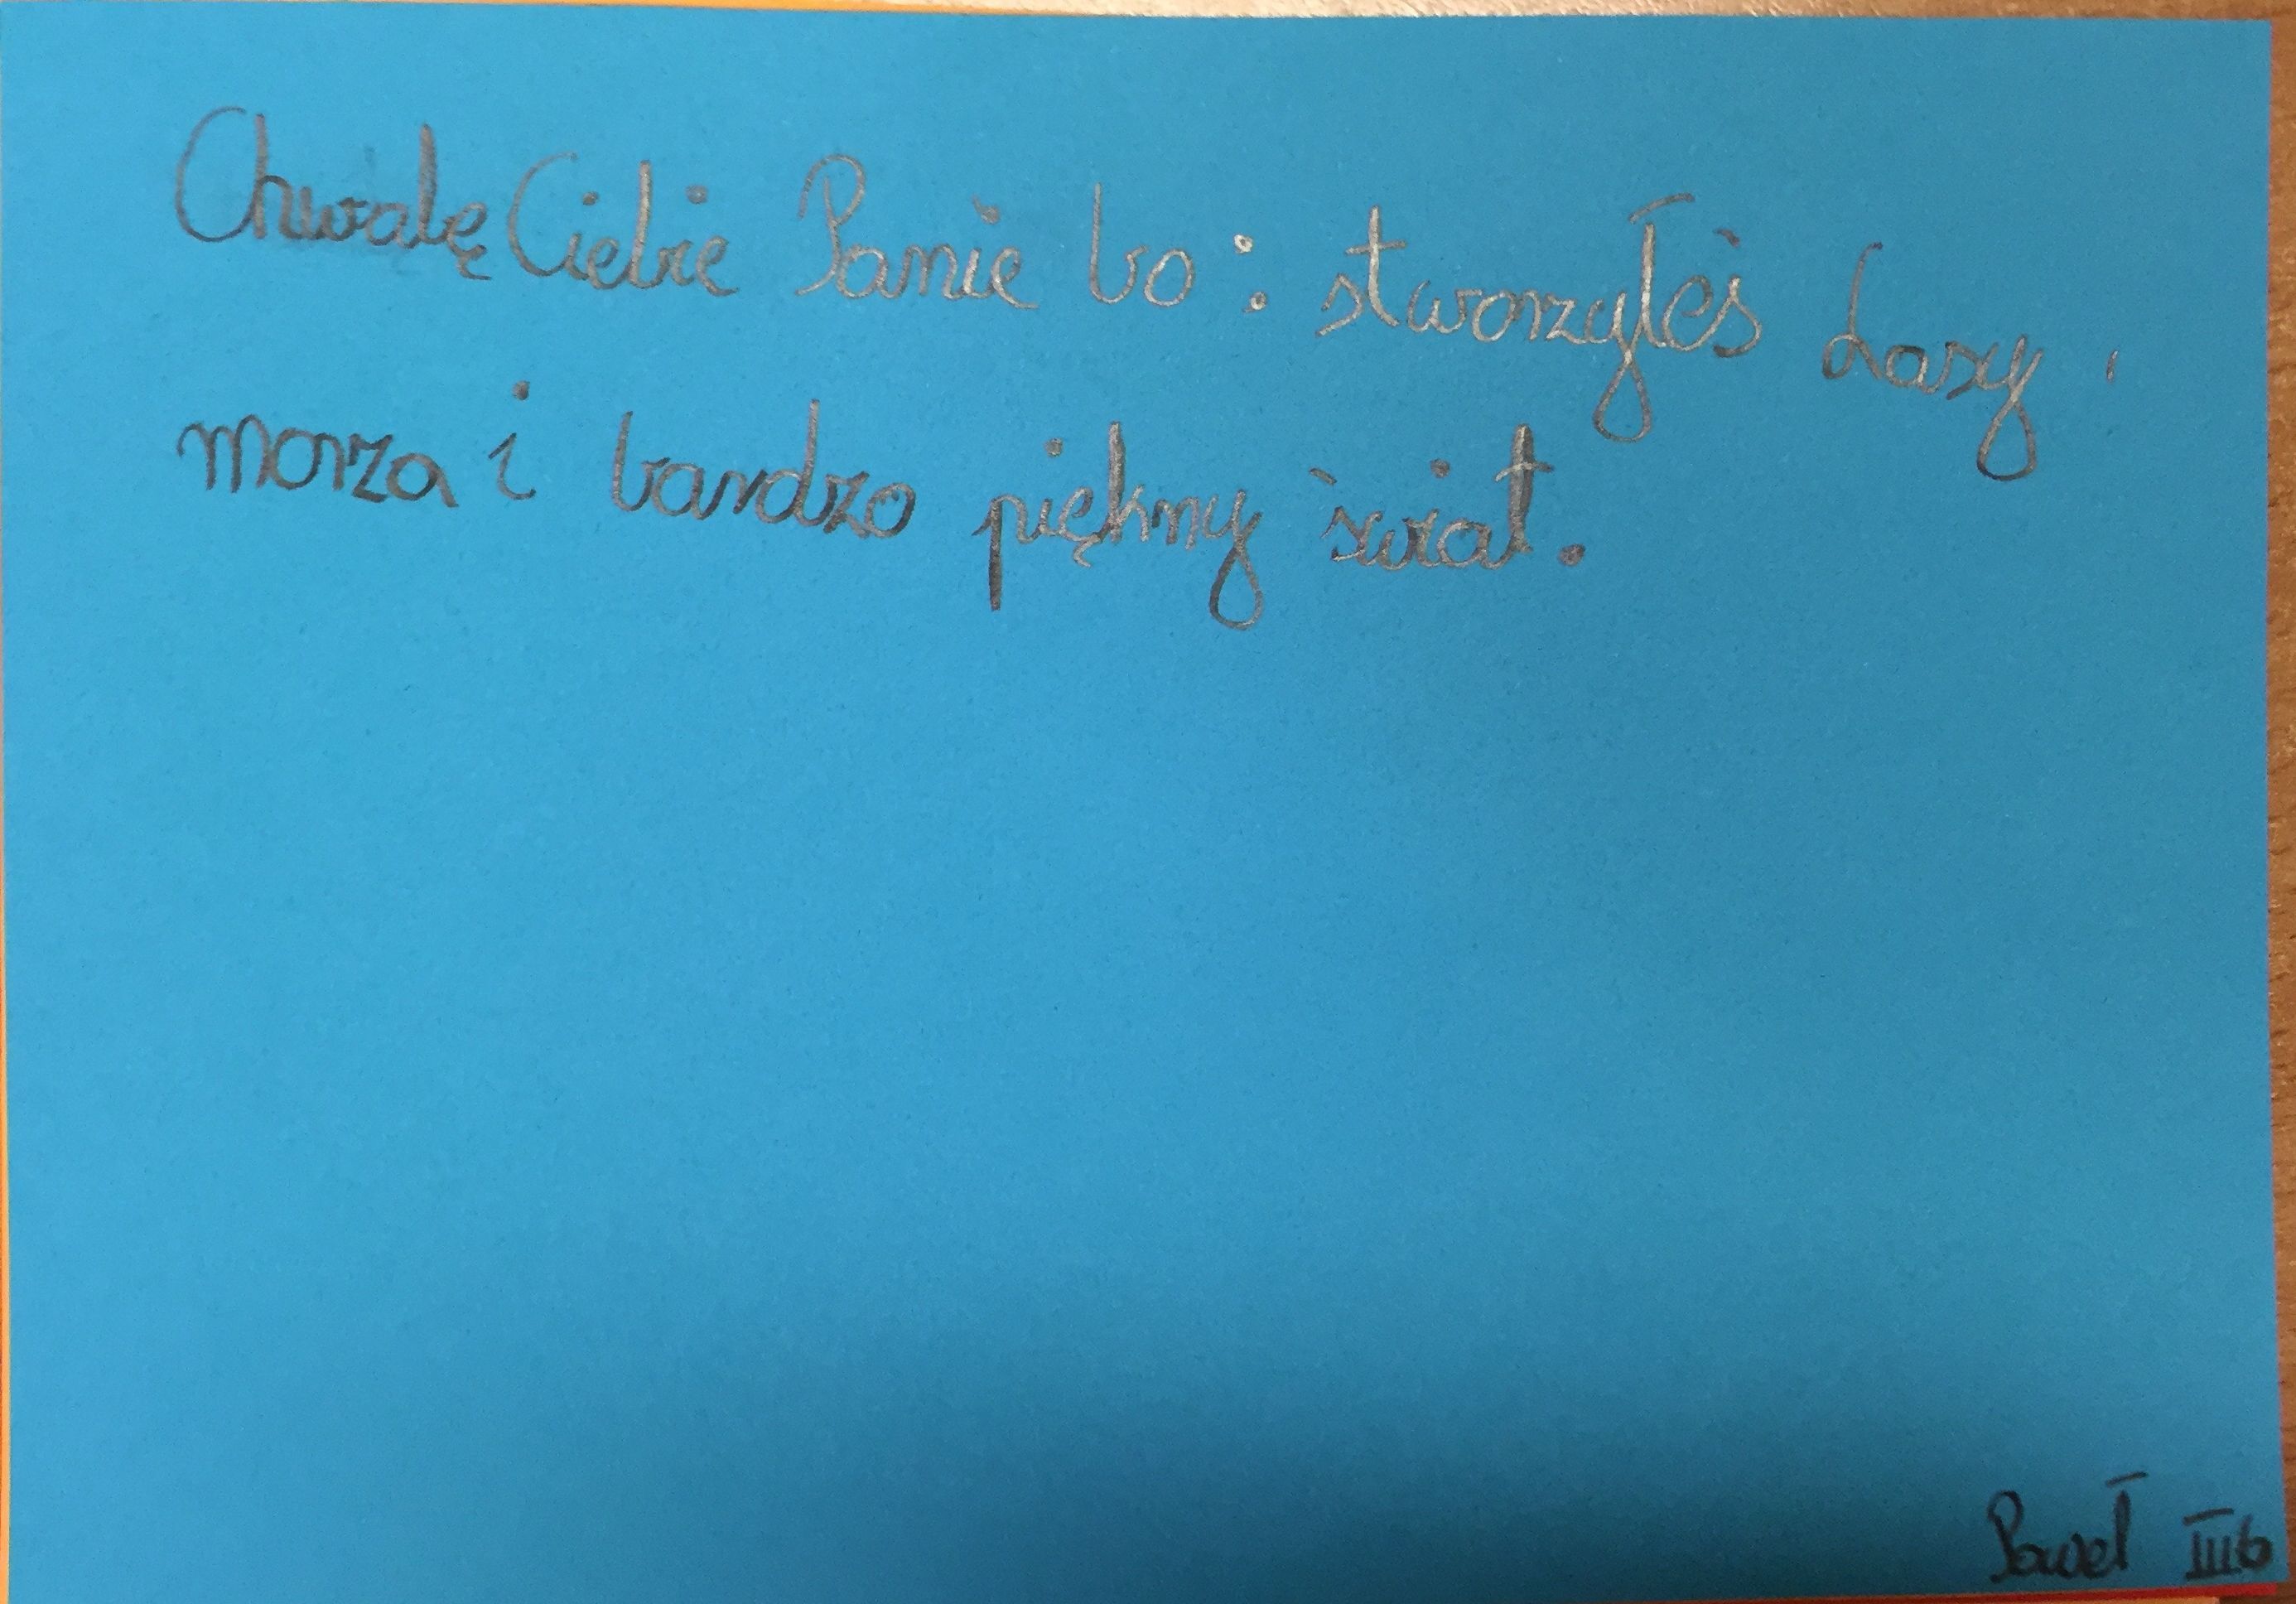 Chwalę Ciebie Panie bo: stworzyłeś Lasy,
morza i bardzo piękny świat.
Paweł IIIb